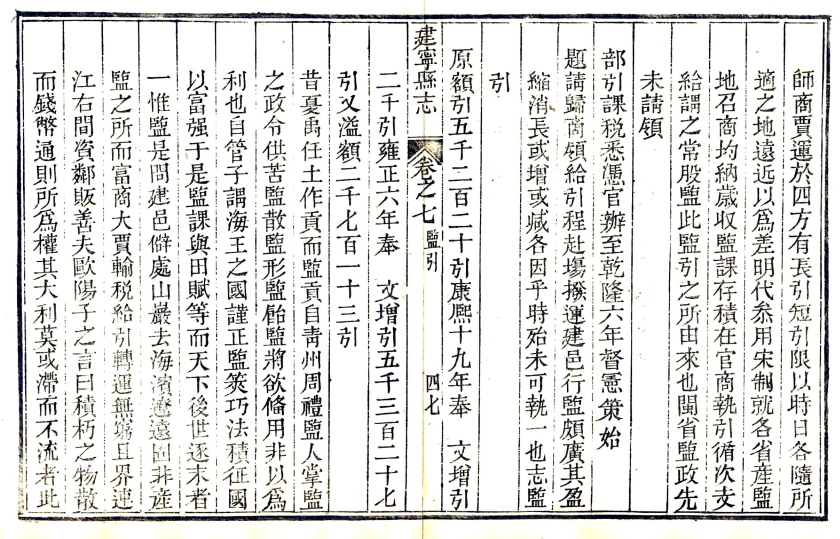 師商賈運於四方有長引短引限以時日各隨所
適之地遠近以爲差明代叅用宋制就各省産鹽
地召商均納歲收鹽課存積在官商執引循次支
給謂之常股鹽此鹽引之所由來也閩省鹽政先
未請領
部引課税悉憑官辦至乾隆六年督憲策始
題請歸商領給引程赴塲撥運建邑行鹽頗廣其盈
縮消長或增或減各因乎時殆未可執一也志鹽
引
原額引五千二百二十引康熙十九年奉 文增引
建寧縣志 卷之七 鹽引 四七
二千引雍正六年奉 文增引五千三百二十七
引又溢額二千七百一十三引
昔夏禹任土作貢而鹽貢自青州周禮鹽人掌鹽
之政令供苦鹽散鹽形鹽飴鹽將欲僃用非以爲
利也自管子謂海王之國謹正鹽筴巧法積征國
以富强于是鹽課與田賦等而天下後世逐末者
一惟鹽是問建邑僻處山巖去海濱遼遠固非産
鹽之所而富商大賈輸税給引轉運無窮且界連
江右間資鄰販善夫歐陽子之言曰積朽之物散
而錢幣通則所爲權其大利莫或滯而不流者此